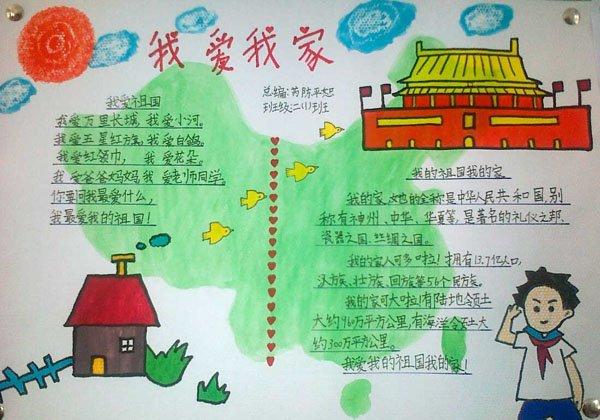 我爱我家
总编:芮陈平妲
班级:二(1)班
我爱祖国
我爱万里长城,我爱小河。
我爱五星红旗,我爱白鸽。
我爱红领巾, 我爱花朵。
我爱爸爸妈妈我爱老师同学。
你要问我最爱什么,
我最爱我的祖国!
我的祖国我的家
我的家,她的全称是中华人民共和国,别
称有神州、中华、华夏等,是著名的礼仪之邦、
瓷器之国、丝绸之国。
我的家人可多啦!拥有13.7亿人口,
汉族、壮族、回族等56个民族。
我的家可大啦!有陆地领土
大约960万平方公里,有海洋领土大
约300万平方公里。
我爱我的祖国我的家!